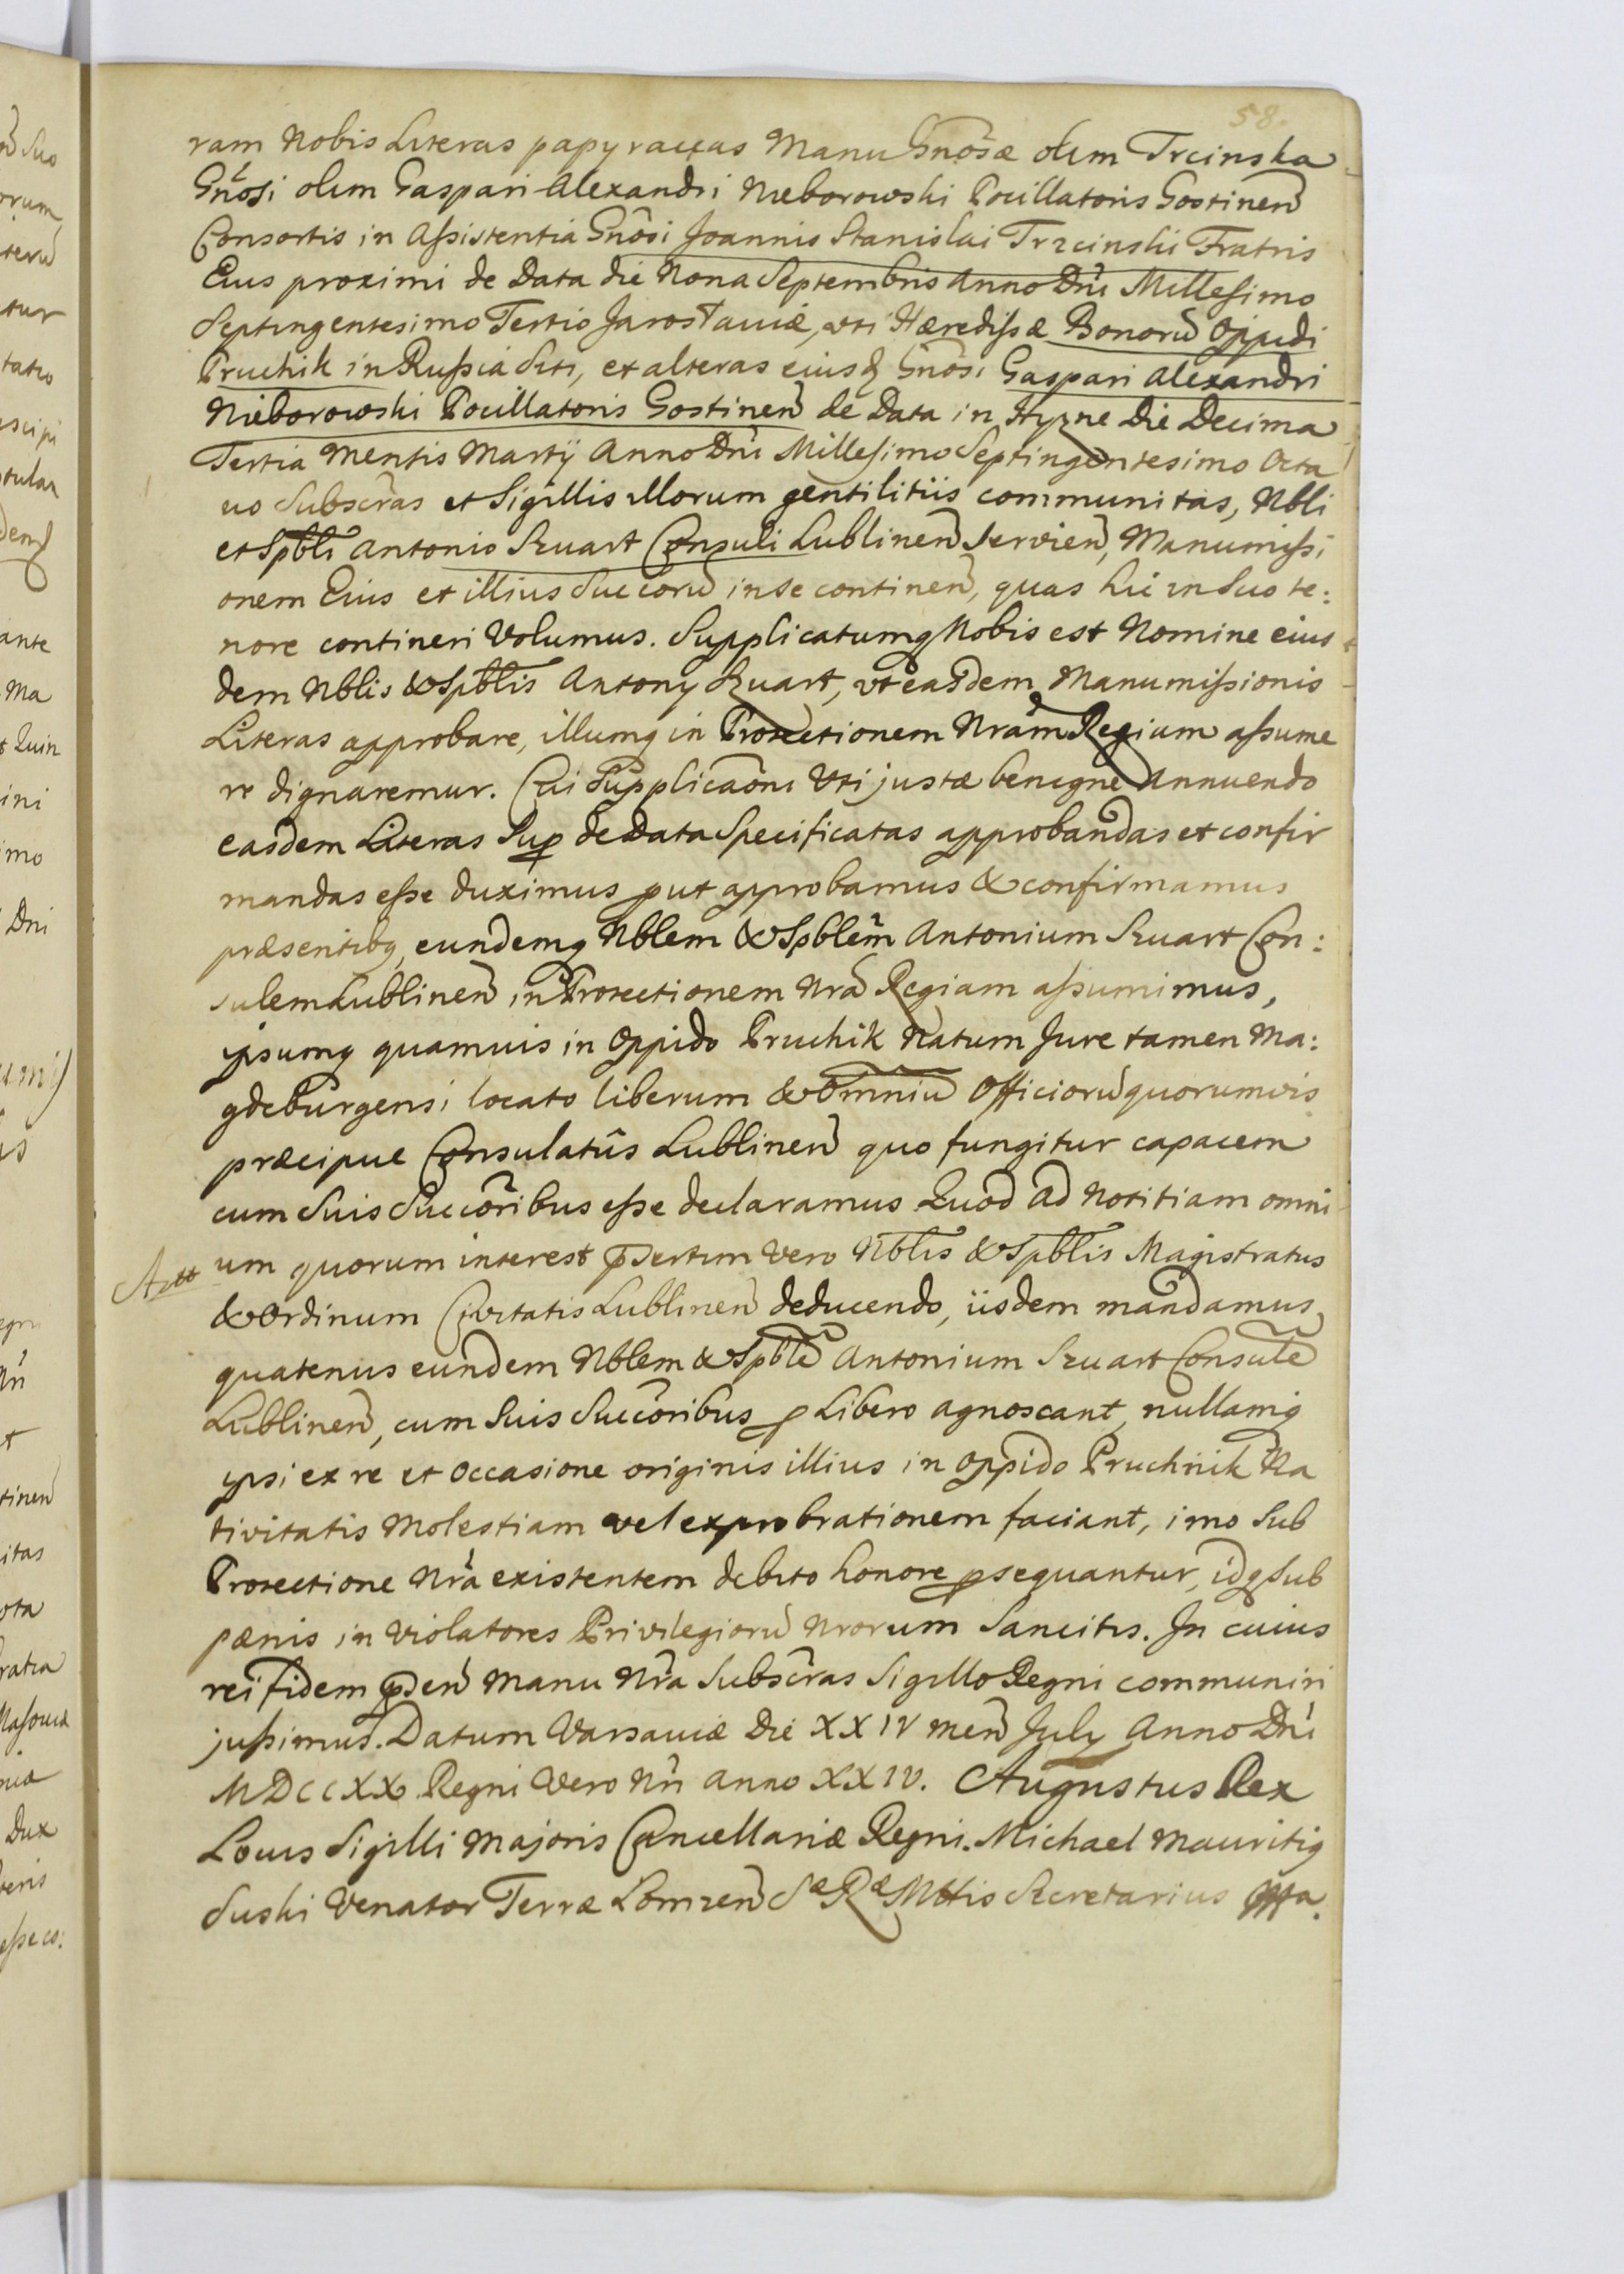 58.
ram Nobis Literas papyraceas Manu Gnosæ olim Trcinska
Gnosi olim Gaspari Alexandri Nieborowski Pocillatoris Gostinen
Consortis in Assistentia Gnosi Joannis Stanislai Trzcinski Fratris
Eius proximi de Data die Nona Septembris Anno Dni Millesimo
Septingentesimo Tertio Jarosłaviæ, uti Hæredissæ Bonorũ Oppidi
Pruchik in Russia Siti, et alteras eiusd Gnosi Gaspari Alexandri
Nieborowski Pocillatoris Gostinen de Data in Hyzne Die Decima
Tertia Mentis Martij Anno Dni Millesimo Septingentesimo Octa
uo Subscras et Sigillis illorum gentilitiis communitas, Nbli
et Spbli Antonio Szuart Consuli Lublinen Servien, Manumissi
onem Eius et illius Succorũ in se continen, quas hic in Suo te:
nore contineri Volumus. Supplicatumq Nobis est Nomine eius
dem Nblis & Spblis Antony Szuart, ut easdem Manumissionis
Literas approbare, illumq in Protectionem Nram Regiam assume
re dignaremur. Cui Supplicaoni Uti justæ benigne Annuendo
easdem Literas Sup de Data Specificatas approbandas et confir
mandas esse duximus put approbamus & confirmamus
præsentibq, eundemq Nblem & Spblem Antonium Szuart Con:
sulem Lublinen in Protectionem Nrã Regiam assumimus,
ipsumq quamuis in Oppido Pruchik Natum Jure tamen Ma:
gdeburgensi locato liberum & Omniũ Officiorũ quorumvis
præcipue Consulatûs Lublinen quo fungitur capacem
cum Suis Succoribus esse declaramus Quod ad Notitiam omni
um quorum interest psertim Vero Nblis & Spblis Magistratus
& Ordinum Civitatis Lublinen deducendo, iisdem mandamus
quatenus eundem Nblem & Spblẽ Antonium Szuart Consulẽ
Lublinen, cum Suis Succoribus p Libero agnoscant, nullamq
ipsi ex re et Occasione originis illius in Oppido Pruchnik Na
tivitatis Molestiam vel exprobrationem faciant, imo Sub
Protectione Nra existentem debito honore psequantur, idq Sub
pænis in Violatores Privilegiorũ Nrorum Sancitis. In cuius
rei fidem psen Manu Nra Subscras Sigillo Regni communiri
jussimus. Datum Varsaviæ Die XXIV men July Anno Dni
MDCCXX Regni Vero Nri Anno XXIV. Augustus Rex
Locus Sigilli Majoris Cancellariæ Regni. Michael Mauritiq
Suski Venator Terræ Lomzen Sæ Ræ Mttis Secretarius